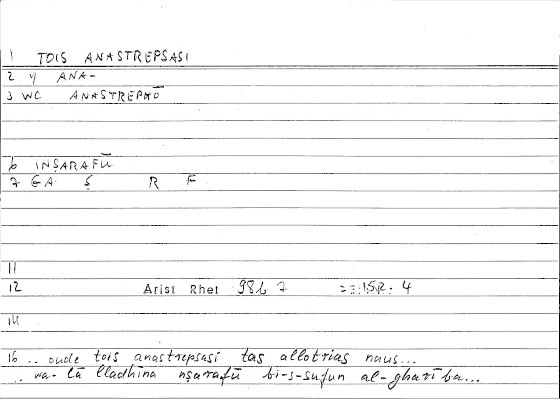 1 TOIS ANASTREPSASI
2 ANA-
3 WC ANASTREPHŌ
6 INṢARAFŪ
7 GA Ṣ R F
11
12 Arist Rhet 98b 7 4
14
16 .. oude tois anastrepsasi tas allotrias naus...
.. wa-lā lladhīna nṣarafū bi-s-sufun al-gharība...